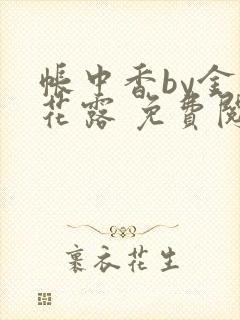 帳中香by金
花露 免費閱
裹衣花生